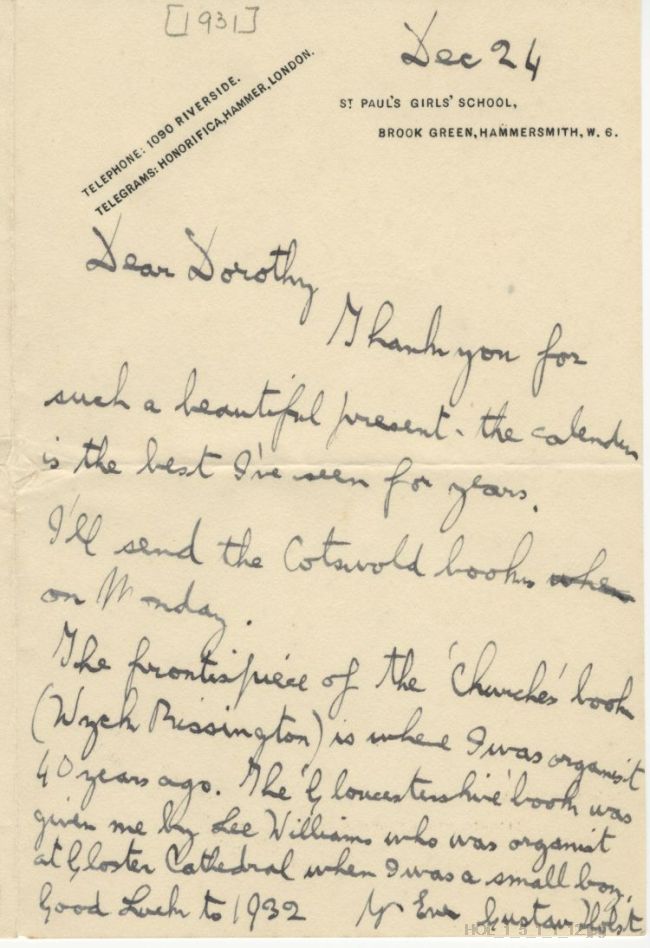 [1931]
Dec 24
TELEPHONE: 1090 RIVERSIDE.
TELEGRAMS: HONORIFICA, HAMMER, LONDON.
ST PAUL'S GIRLS' SCHOOL,
BROOK GREEN, HAMMERSMITH, W. 6.
Dear Dorothy
Thank you for
such a beautiful present - the calender
is the best I've seen for years.
I'll send the Cotswold books when
on Monday.
The frontispiece of the 'Churches' book
(Wyck Rissington) is where I was organist
40 years ago. The 'Gloucestershire' book was
given me by Lee Williams who was organist
at Gloster Cathedral when I was a small boy.
Good Luck to 1932 Yr Ever Gustav Holst